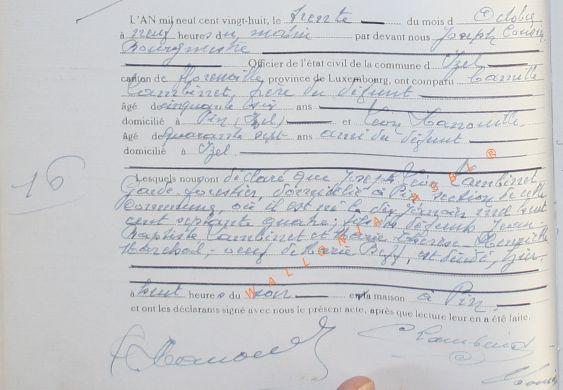 L'AN mil neuf cent vingt-huit, le trente du mois d'Octobre
à neuf heures du matin par devant nous Joseph
Bourgmestre
Officier de l'état civil de la commune d'Izel
canton de Florenville, province de Luxembourg, ont comparu Camille
Lambinet, frère du défunt
âgé de cinquante six ans
domicilié à Pin (Izel) et Léon Manouille
âgé de quarante sept ans ami du défunt
domicilié à Izel
Lesquels nous ont déclaré que Joseph Lambinet
Garde-forestier, domicilié à Pin, section de cette
commune, où il est né le dix mil huit
cent septante quatre; fils de défunts Jean
Baptiste Lambinet et Marie Thérèse
Maréchal, veuf de Marie est décédé hier
à huit heures du soir en la maison à Pin,
et ont les déclarants signé avec nous le présent acte, après que lecture leur en a été faite.
16
WALLONIA ASBL
C Lambinet